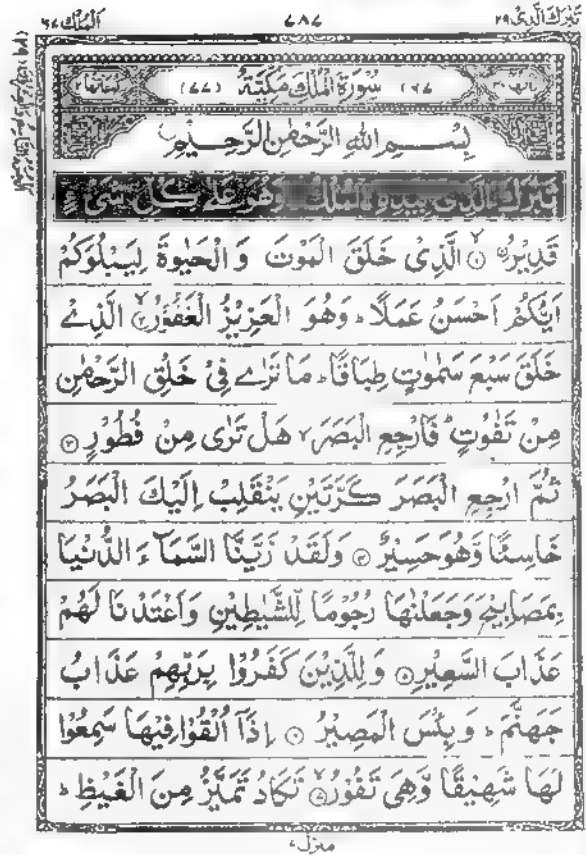 تَبٰرَكَ الَّذِیْ ۲۹
۷۸۷
اَلْمُلْك ۶۷
سُوْرَةُ الْمُلْكِ مَكِّیَّةٌ
بِسْمِ اللهِ الرَّحْمٰنِ الرَّحِیْمِ
تَبٰرَكَ الَّذِیْ بِیَدِهِ الْمُلْكُ وَهُوَ عَلٰی كُلِّ شَیْءٍ
قَدِیْرُ ۙ۝۱ الَّذِیْ خَلَقَ الْمَوْتَ وَ الْحَیٰوةَ لِیَبْلُوَكُمْ
اَیُّكُمْ اَحْسَنُ عَمَلًا ؕ وَهُوَ الْعَزِیْزُ الْغَفُوْرُ ۙ۝۲ الَّذِیْ
خَلَقَ سَبْعَ سَمٰوٰتٍ طِبَاقًا ؕ مَا تَرٰی فِیْ خَلْقِ الرَّحْمٰنِ
مِنْ تَفٰوُتٍ ؕ فَارْجِعِ الْبَصَرَ ۙ هَلْ تَرٰی مِنْ فُطُوْرٍ ۝۳
ثُمَّ ارْجِعِ الْبَصَرَ كَرَّتَیْنِ یَنْقَلِبْ اِلَیْكَ الْبَصَرُ
خَاسِئًا وَّهُوَ حَسِیْرٌ ۝۴ وَ لَقَدْ زَیَّنَّا السَّمَآءَ الدُّنْیَا
بِمَصَابِیْحَ وَجَعَلْنٰهَا رُجُوْمًا لِّلشَّیٰطِیْنِ وَاَعْتَدْنَا لَهُمْ
عَذَابَ السَّعِیْرِ ۝۵ وَ لِلَّذِیْنَ كَفَرُوْا بِرَبِّهِمْ عَذَابُ
جَهَنَّمَ ؕ وَ بِئْسَ الْمَصِیْرُ ۝۶ اِذَاۤ اُلْقُوْا فِیْهَا سَمِعُوْا
لَهَا شَهِیْقًا وَّهِیَ تَفُوْرُ ۙ۝۷ تَكَادُ تَمَیَّزُ مِنَ الْغَیْظِ ؕ
منزل ۷